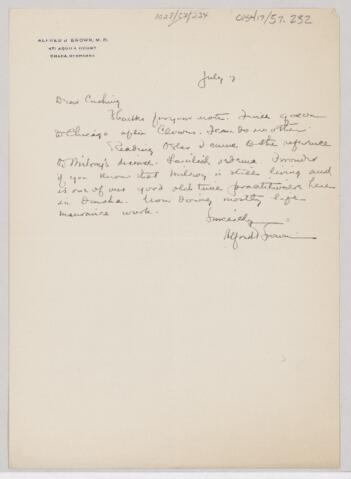 ALFRED J. BROWN, M. D.
OMAHA, NEBRASKA
July
Dear Cushing
Thanks for your note. I will go on
to Chicago after Clowes. I can do no other
Reading Osler I came to the reference
to Milroy's disease. Familial edema. I wonder
if you know that Milroy is still living and
is one of our good old time practitioners here
in Omaha. Now doing mostly life
insurance work.
Sincerely
Alfred Brown